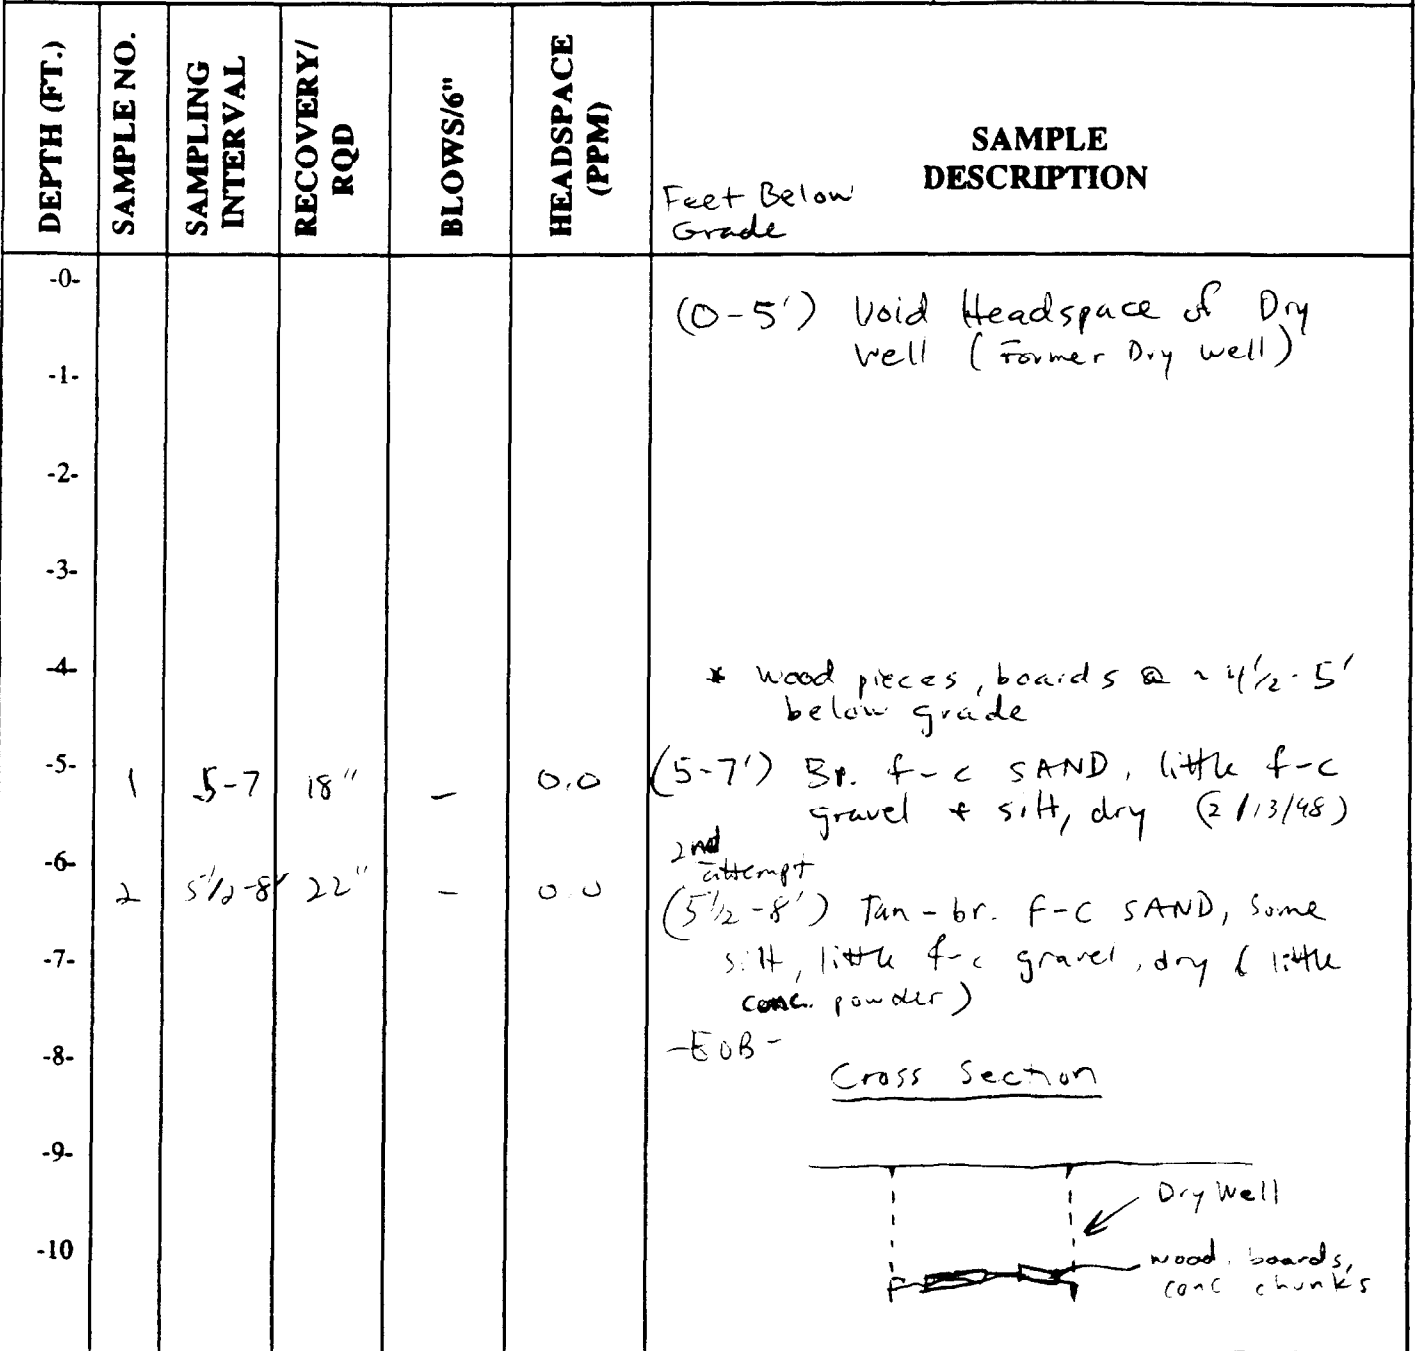 DEPTH (FT.)
SAMPLE NO.
SAMPLING
INTERVAL
RECOVERY/
RQD
BLOWS/6"
HEADSPACE
(PPM)
SAMPLE
DESCRIPTION
Feet Below
Grade
-0-
(0-5') Void Headspace of Dry
Well (Former Dry Well)
-1-
-2-
-3-
-4-
* wood pieces, boards @ ~ 4 1/2 - 5'
below grade
-5-
1 5-7 18" - 0.0 (5-7') Br. f-c SAND, little f-c
gravel + silt, dry (2/13/98)
-6-
2nd
attempt
2 5 1/2-8' 22" - 0.0 (5 1/2-8') Tan-br. F-C SAND, Some
silt, little f-c gravel, dry (little
conc. powder)
-7-
-8-
-EOB-
Cross Section
-9-
Dry Well
-10
wood, boards,
conc chunks